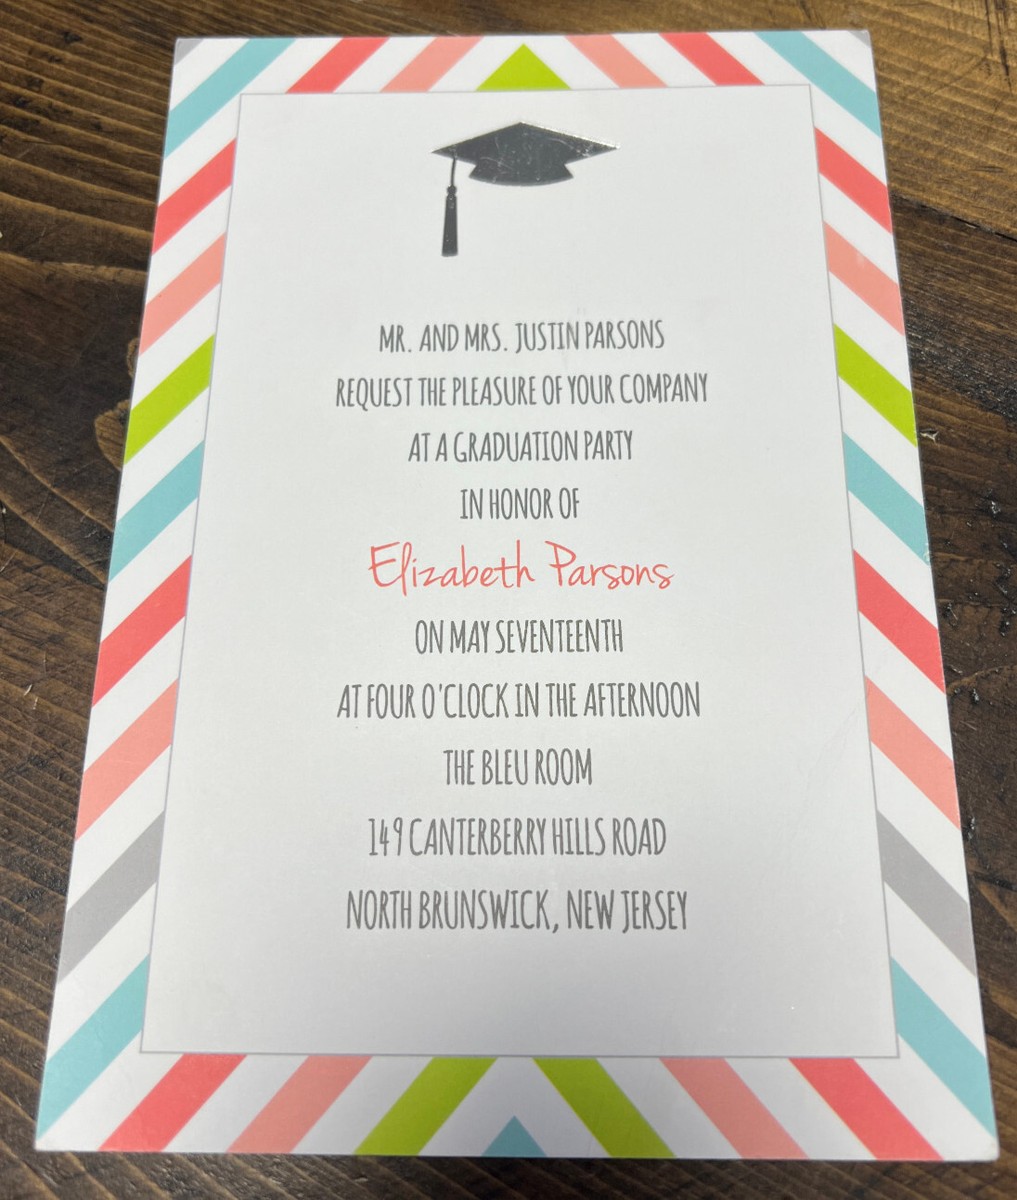 MR. AND MRS. JUSTIN PARSONS
REQUEST THE PLEASURE OF YOUR COMPANY
AT A GRADUATION PARTY
IN HONOR OF
Elizabeth Parsons
ON MAY SEVENTEENTH
AT FOUR O'CLOCK IN THE AFTERNOON
THE BLEU ROOM
149 CANTERBERRY HILLS ROAD
NORTH BRUNSWICK, NEW JERSEY